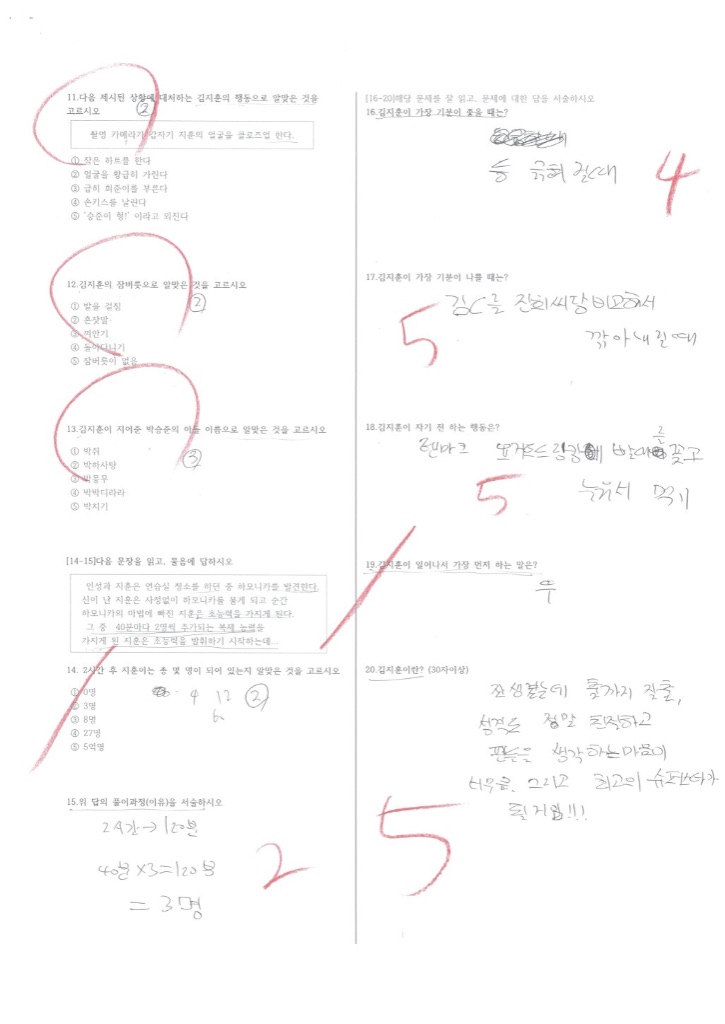 11.다음 제시된 상황에 대처하는 김지훈의 행동으로 알맞은 것을
고르시오 ②
촬영 카메라가 갑자기 지훈의 얼굴을 클로즈업 한다.
① 작은 하트를 한다
② 얼굴을 황급히 가린다
③ 급히 희준이를 부른다
④ 손키스를 날린다
⑤ '승준이 형!' 이라고 외친다
12.김지훈의 잠버릇으로 알맞은 것을 고르시오
②
① 발을 걸침
② 혼잣말
③ 껴안기
④ 돌아다니기
⑤ 잠버릇이 없음
13.김지훈이 지어준 박승준의 이름으로 알맞은 것을 고르시오
③
① 박쥐
② 박하사탕
③ 박풍우
④ 박박디라라
⑤ 박치기
[14-15]다음 문장을 읽고, 물음에 답하시오
인성과 지훈은 연습실 청소를 하던 중 하모니카를 발견한다.
신이 난 지훈은 사정없이 하모니카를 불게 되고 순간
하모니카의 마법에 빠진 지훈은 초능력을 가지게 된다.
그 중 40분마다 2명씩 추가되는 복제 능력을
가지게 된 지훈은 초능력을 발휘하기 시작하는데...
14. 2시간 후 지훈이는 총 몇 명이 되어 있는지 알맞은 것을 고르시오
① 0명
② 3명
③ 8명
④ 27명
⑤ 5억명
4 12 ②
15.위 답의 풀이과정(이유)을 서술하시오
2시간→120분
40분×3=120분
=3명
2
[16-20]해당 문제를 잘 읽고, 문제에 대한 답을 서술하시오
16.김지훈이 가장 기분이 좋을 때는?
등 긁혀질때
4
17.김지훈이 가장 기분이 나쁠 때는?
김C를 진희씨랑 비교해서
깎아내릴때
5
18.김지훈이 자기 전 하는 행동은?
덴마크 요거트드링크에 빨대를 꽂고
누워서 먹기
5
19.김지훈이 일어나서 가장 먼저 하는 말은?
뚜
20.김지훈이란? (30자이상)
잘생겼는데 춤까지 잘춤,
성격도 정말 친절하고
팬들을 생각하는마음이
너무큼. 그리고 최고의 슈퍼스타가
될거임!!!
5